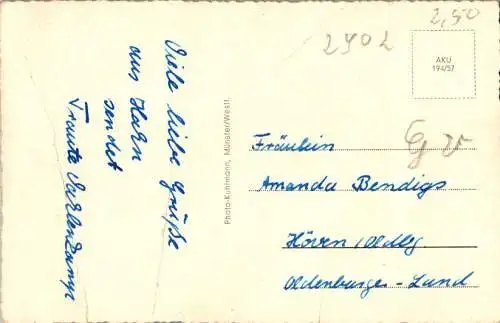 2,50
2902
AKU
194/57
Viele liebe Grüße
aus Hahn
sendet
Traute
Photo-Kuhlmann, Münster/Westf.
Fräulein
Amanda Bendigs
Höven/Oldbg
Oldenburger-Land